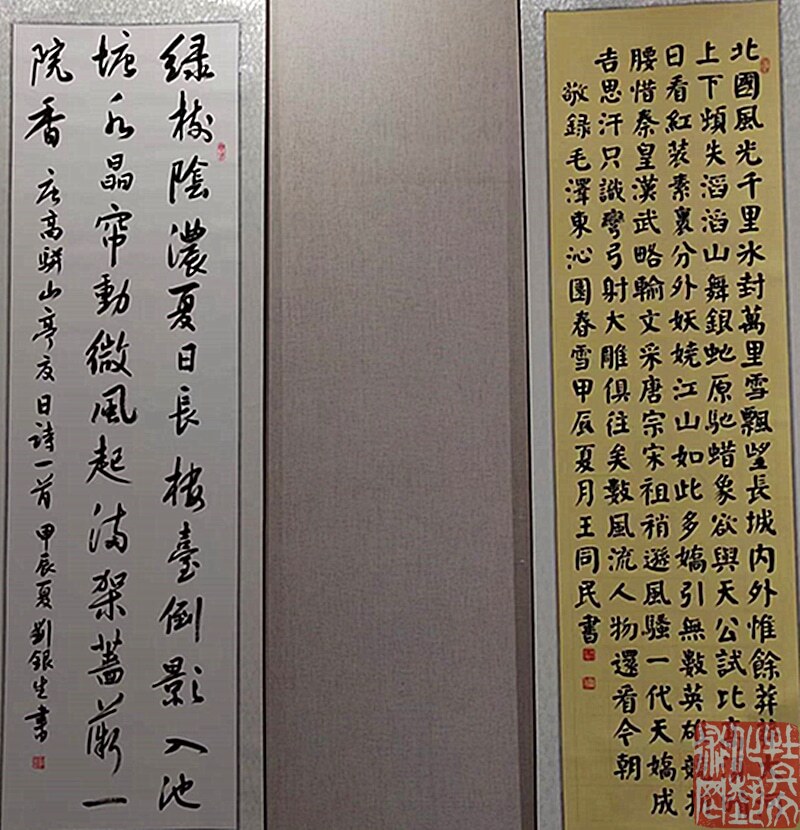 北國風光千里冰封萬里雪飄望長城内外惟餘莽
上下頓失滔滔山舞銀虵原馳蜡象欲與天公試比
日看紅装素裹分外妖嬈江山如此多嬌引無數英雄競折
腰惜秦皇漢武略輸文采唐宗宋祖稍遜風騷一代天嬌成
吉思汗只識彎弓射大雕俱往矣數風流人物還看今朝
敬録毛澤東沁園春雪甲辰夏月王同民書
緑樹陰濃夏日長樓臺倒影入池
塘水晶帘動微風起滿架薔薇一
院香 唐高駢山亭夏日詩一首甲辰夏劉銀生書